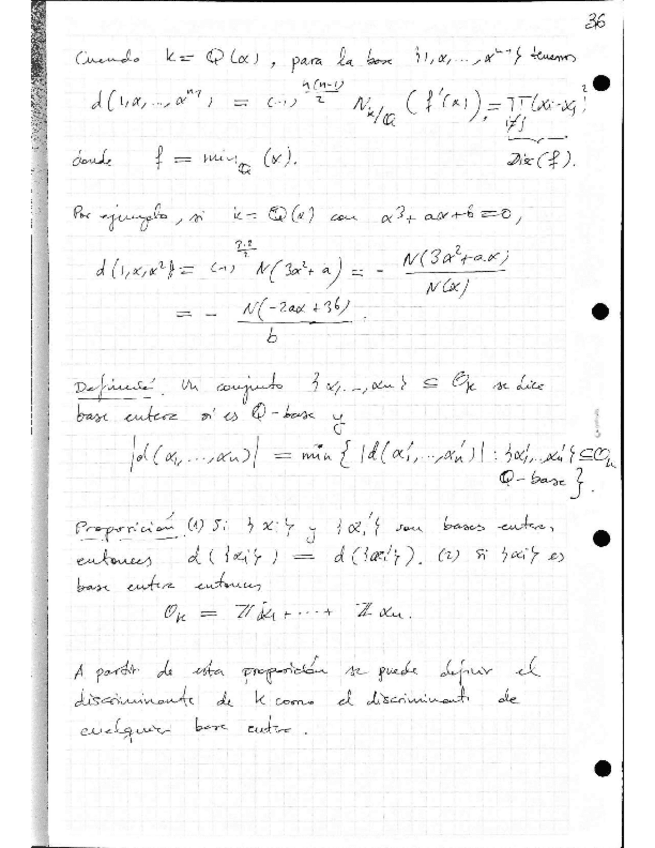 36
Cuando k = Q(α), para la base {1, α, ..., α^{n-1}} tenemos
d(1, α, ..., α^{n-1}) = (-1)^{n(n-1)/2} N_{k/Q} (f'(α)) = ∏_{i≠j} (x_i - x_j)^2
Dis(f).
donde f = min_Q (α).
Por ejemplo, si k = Q(α) con α^3 + aα + b = 0,
d(1, α, α^2) = (-1)^{3·2/2} N(3α^2 + a) = - N(3α^2 + a·α) / N(α)
= - N(-2aα + 3b) / b .
Definición. Un conjunto {α_1, ..., α_n} ⊆ O_k se dice
base entera si es Q-base y
|d(α_1, ..., α_n)| = min { |d(α_1', ..., α_n')| : {α_1', ..., α_n'} ⊆ O_k
Q-base }.
Proposición (1) Si {α_i} y {α_i'} son bases enteras,
entonces d({α_i}) = d({α_i'}). (2) Si {α_i} es
base entera entonces
O_k = Z α_1 + ··· + Z α_n.
A partir de esta proposición se puede definir el
discriminante de k como el discriminante de
cualquier base entera.